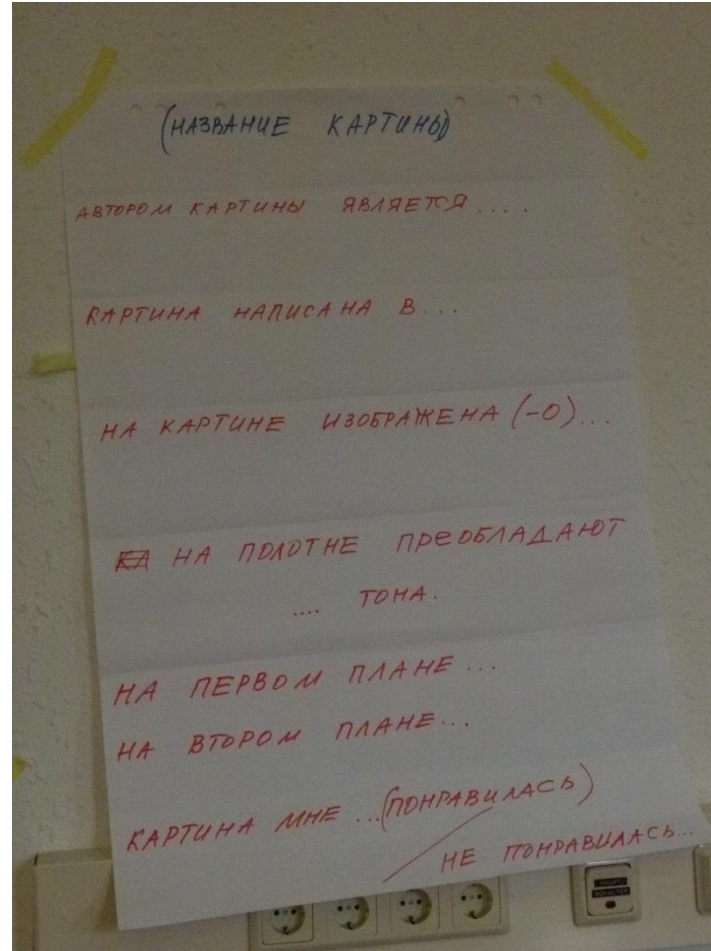 (НАЗВАНИЕ КАРТИНЫ)
АВТОРОМ КАРТИНЫ ЯВЛЯЕТСЯ....
КАРТИНА НАПИСАНА В...
НА КАРТИНЕ ИЗОБРАЖЕНА (-О)...
НА ПОЛОТНЕ ПРЕОБЛАДАЮТ
.... ТОНА.
НА ПЕРВОМ ПЛАНЕ...
НА ВТОРОМ ПЛАНЕ...
КАРТИНА МНЕ ...(ПОНРАВИЛАСЬ)
/ НЕ ПОНРАВИЛАСЬ...